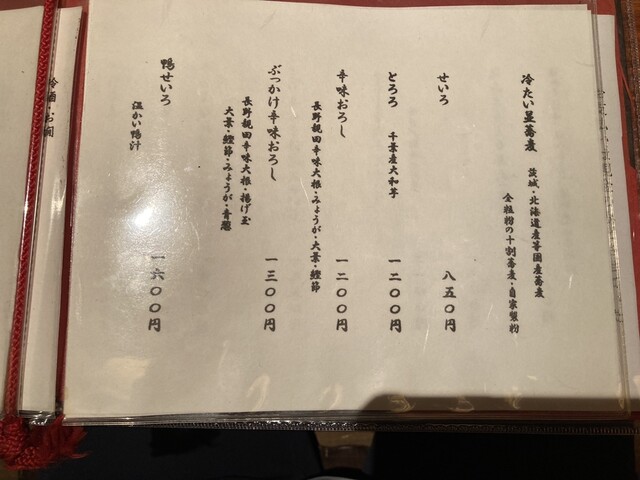 冷たい昼蕎麦　茨城・北海道産等国産蕎麦
全粒粉の十割蕎麦・自家製粉
せいろ　八五〇円
とろろ　千葉産大和芋　一二〇〇円
辛味おろし　一二〇〇円
長野親田辛味大根・みょうが・大葉・鰹節
ぶっかけ辛味おろし　一三〇〇円
長野親田辛味大根・揚げ玉
大葉・鰹節・みょうが・青葱
鴨せいろ　一六〇〇円
温かい鴨汁
冷酒・お燗